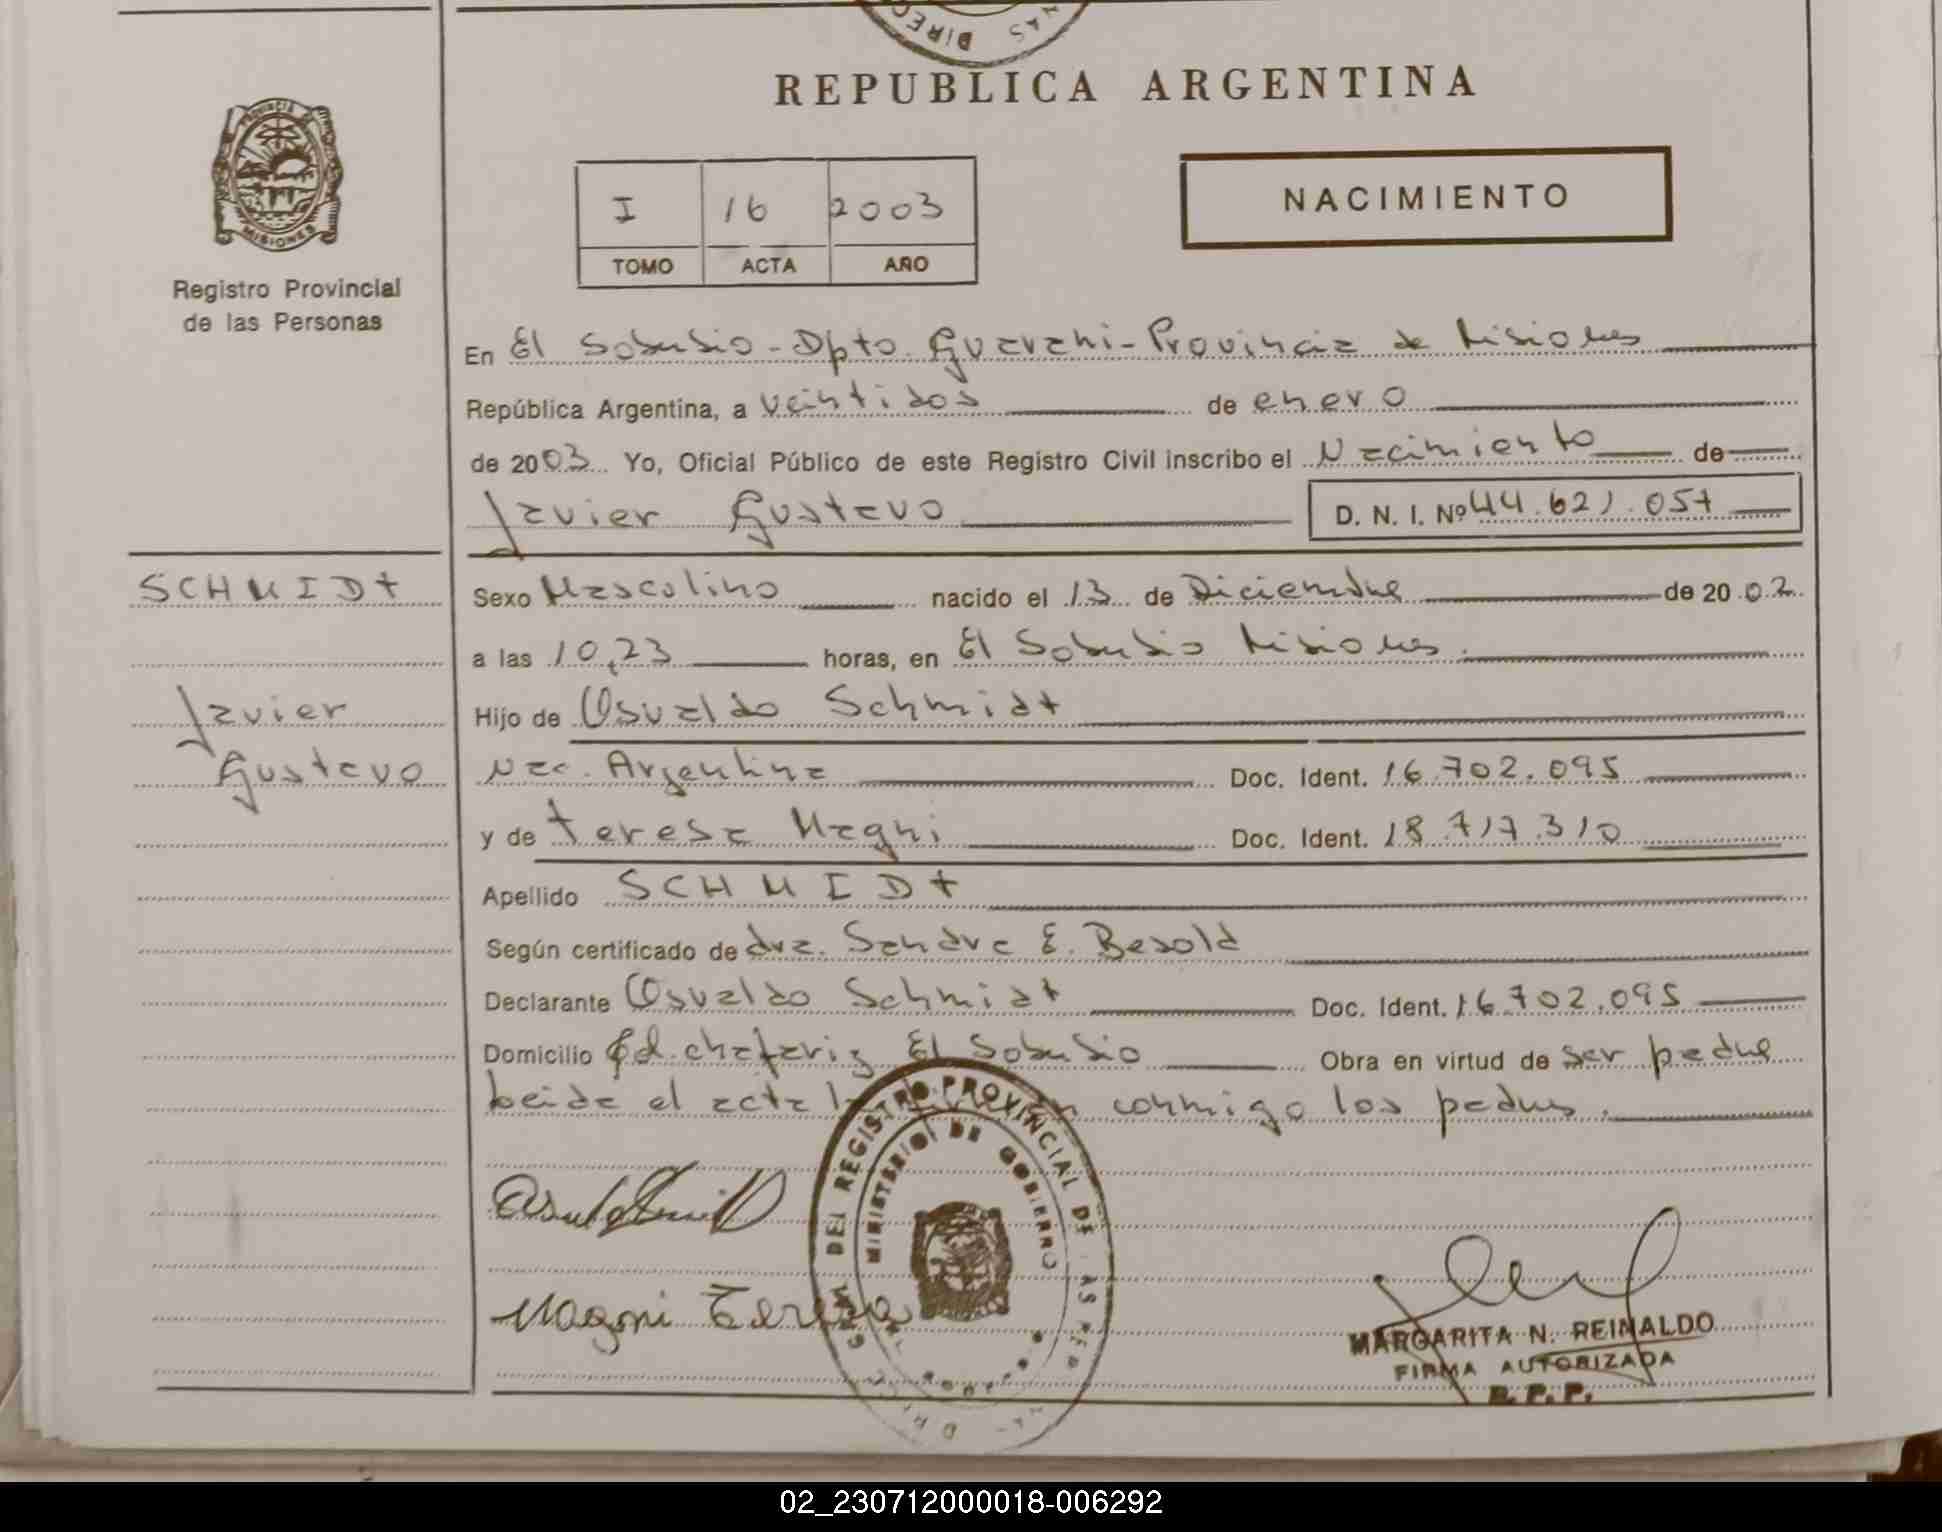 REPUBLICA ARGENTINA
I 16 2003
TOMO ACTA AÑO
NACIMIENTO
MISIONES
Registro Provincial
de las Personas
En El Soberbio - Dpto. Guarani - Provincia de Misiones
República Argentina, a veintidos de enero
de 2003. Yo, Oficial Público de este Registro Civil inscribo el Nacimiento de
Javier Gustavo
D. N. I. Nº 44.621.057
SCHMIDT
Javier
Gustavo
Sexo Masculino nacido el 13 de Diciembre de 2002
a las 10,23 horas, en El Soberbio Misiones.
Hijo de Osvaldo Schmidt
Nac. Argentina Doc. Ident. 16.702.095
y de Teresa Magni Doc. Ident. 18.717.310
Apellido SCHMIDT
Según certificado de dra. Sandra E. Besold
Declarante Osvaldo Schmidt Doc. Ident. 16.702.095
Domicilio El Soberbio Obra en virtud de ser padre
Leida el acta conmigo los padres.
DEL REGISTRO PROVINCIAL DE LAS PER
MINISTERIO DE GOBIERNO
Magni Teresa
MARGARITA N. REINALDO
FIRMA AUTORIZADA
R. P. P.
02_230712000018-006292